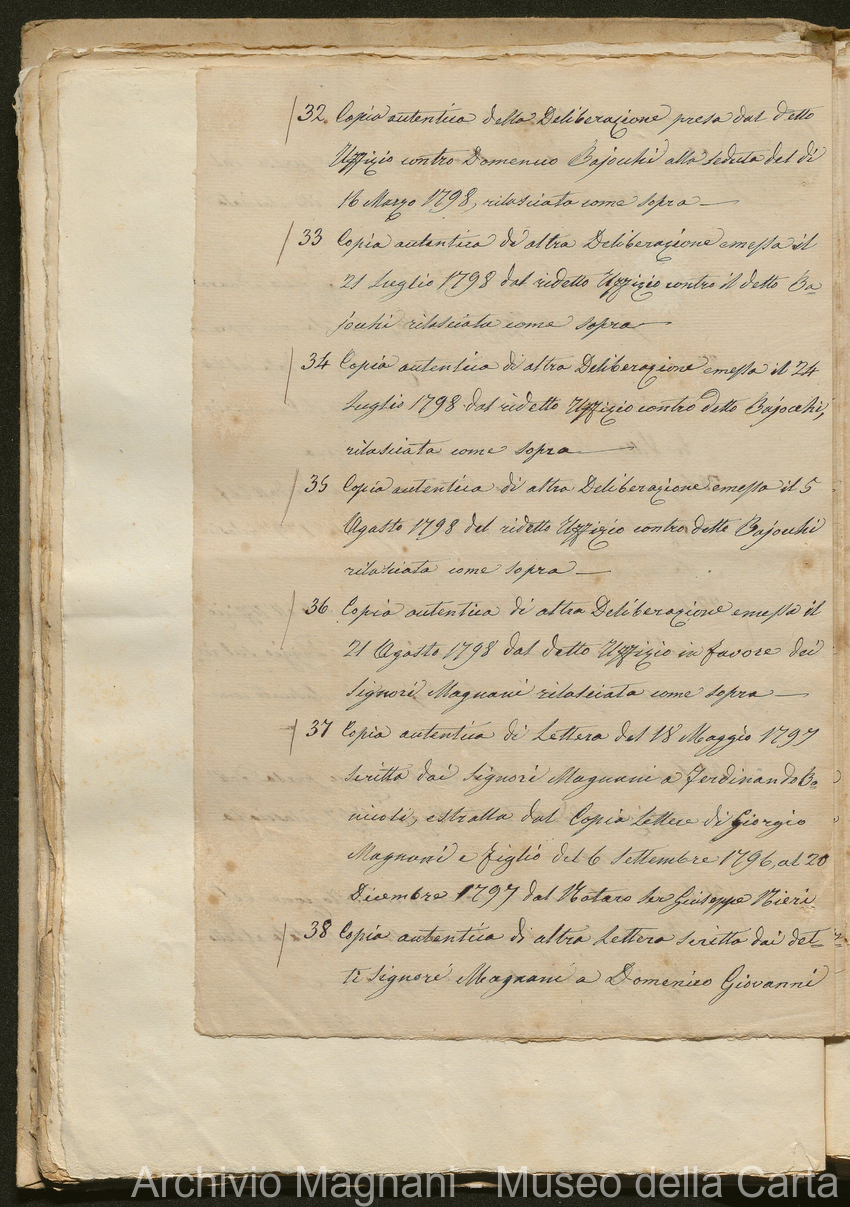 32. Copia autentica della Deliberazione presa dal detto
Uffizio contro Domenico Bajocchi alla seduta del dì
16 Marzo 1798, rilasciata come sopra —
33 Copia autentica di altra Deliberazione emessa il
21 Luglio 1798 dal ridetto Uffizio contro il detto Ba=
jocchi rilasciata come sopra —
34 Copia autentica di altra Deliberazione emessa il 24
Luglio 1798 dal ridetto Uffizio contro detto Bajocchi,
rilasciata come sopra —
35 Copia autentica di altra Deliberazione emessa il 5
Agosto 1798 del ridetto Uffizio contro detto Bajocchi
rilasciata come sopra —
36 Copia autentica di altra Deliberazione emessa il
21 Agosto 1798 dal detto Uffizio in favore dei
Signori Magnani rilasciata come sopra —
37 Copia autentica di Lettera del 18 Maggio 1797
scritta dai Signori Magnani a Ferdinando Bo=
nicoli, estratta dal Copia Lettere di Giorgio
Magnani e figlio del 6 Settembre 1796, al 20
Dicembre 1797 dal Notaro Ser Giuseppe Nieri
38 Copia autentica di altra Lettera scritta dai det=
ti Signori Magnani a Domenico Giovanni
Archivio Magnani - Museo della Carta